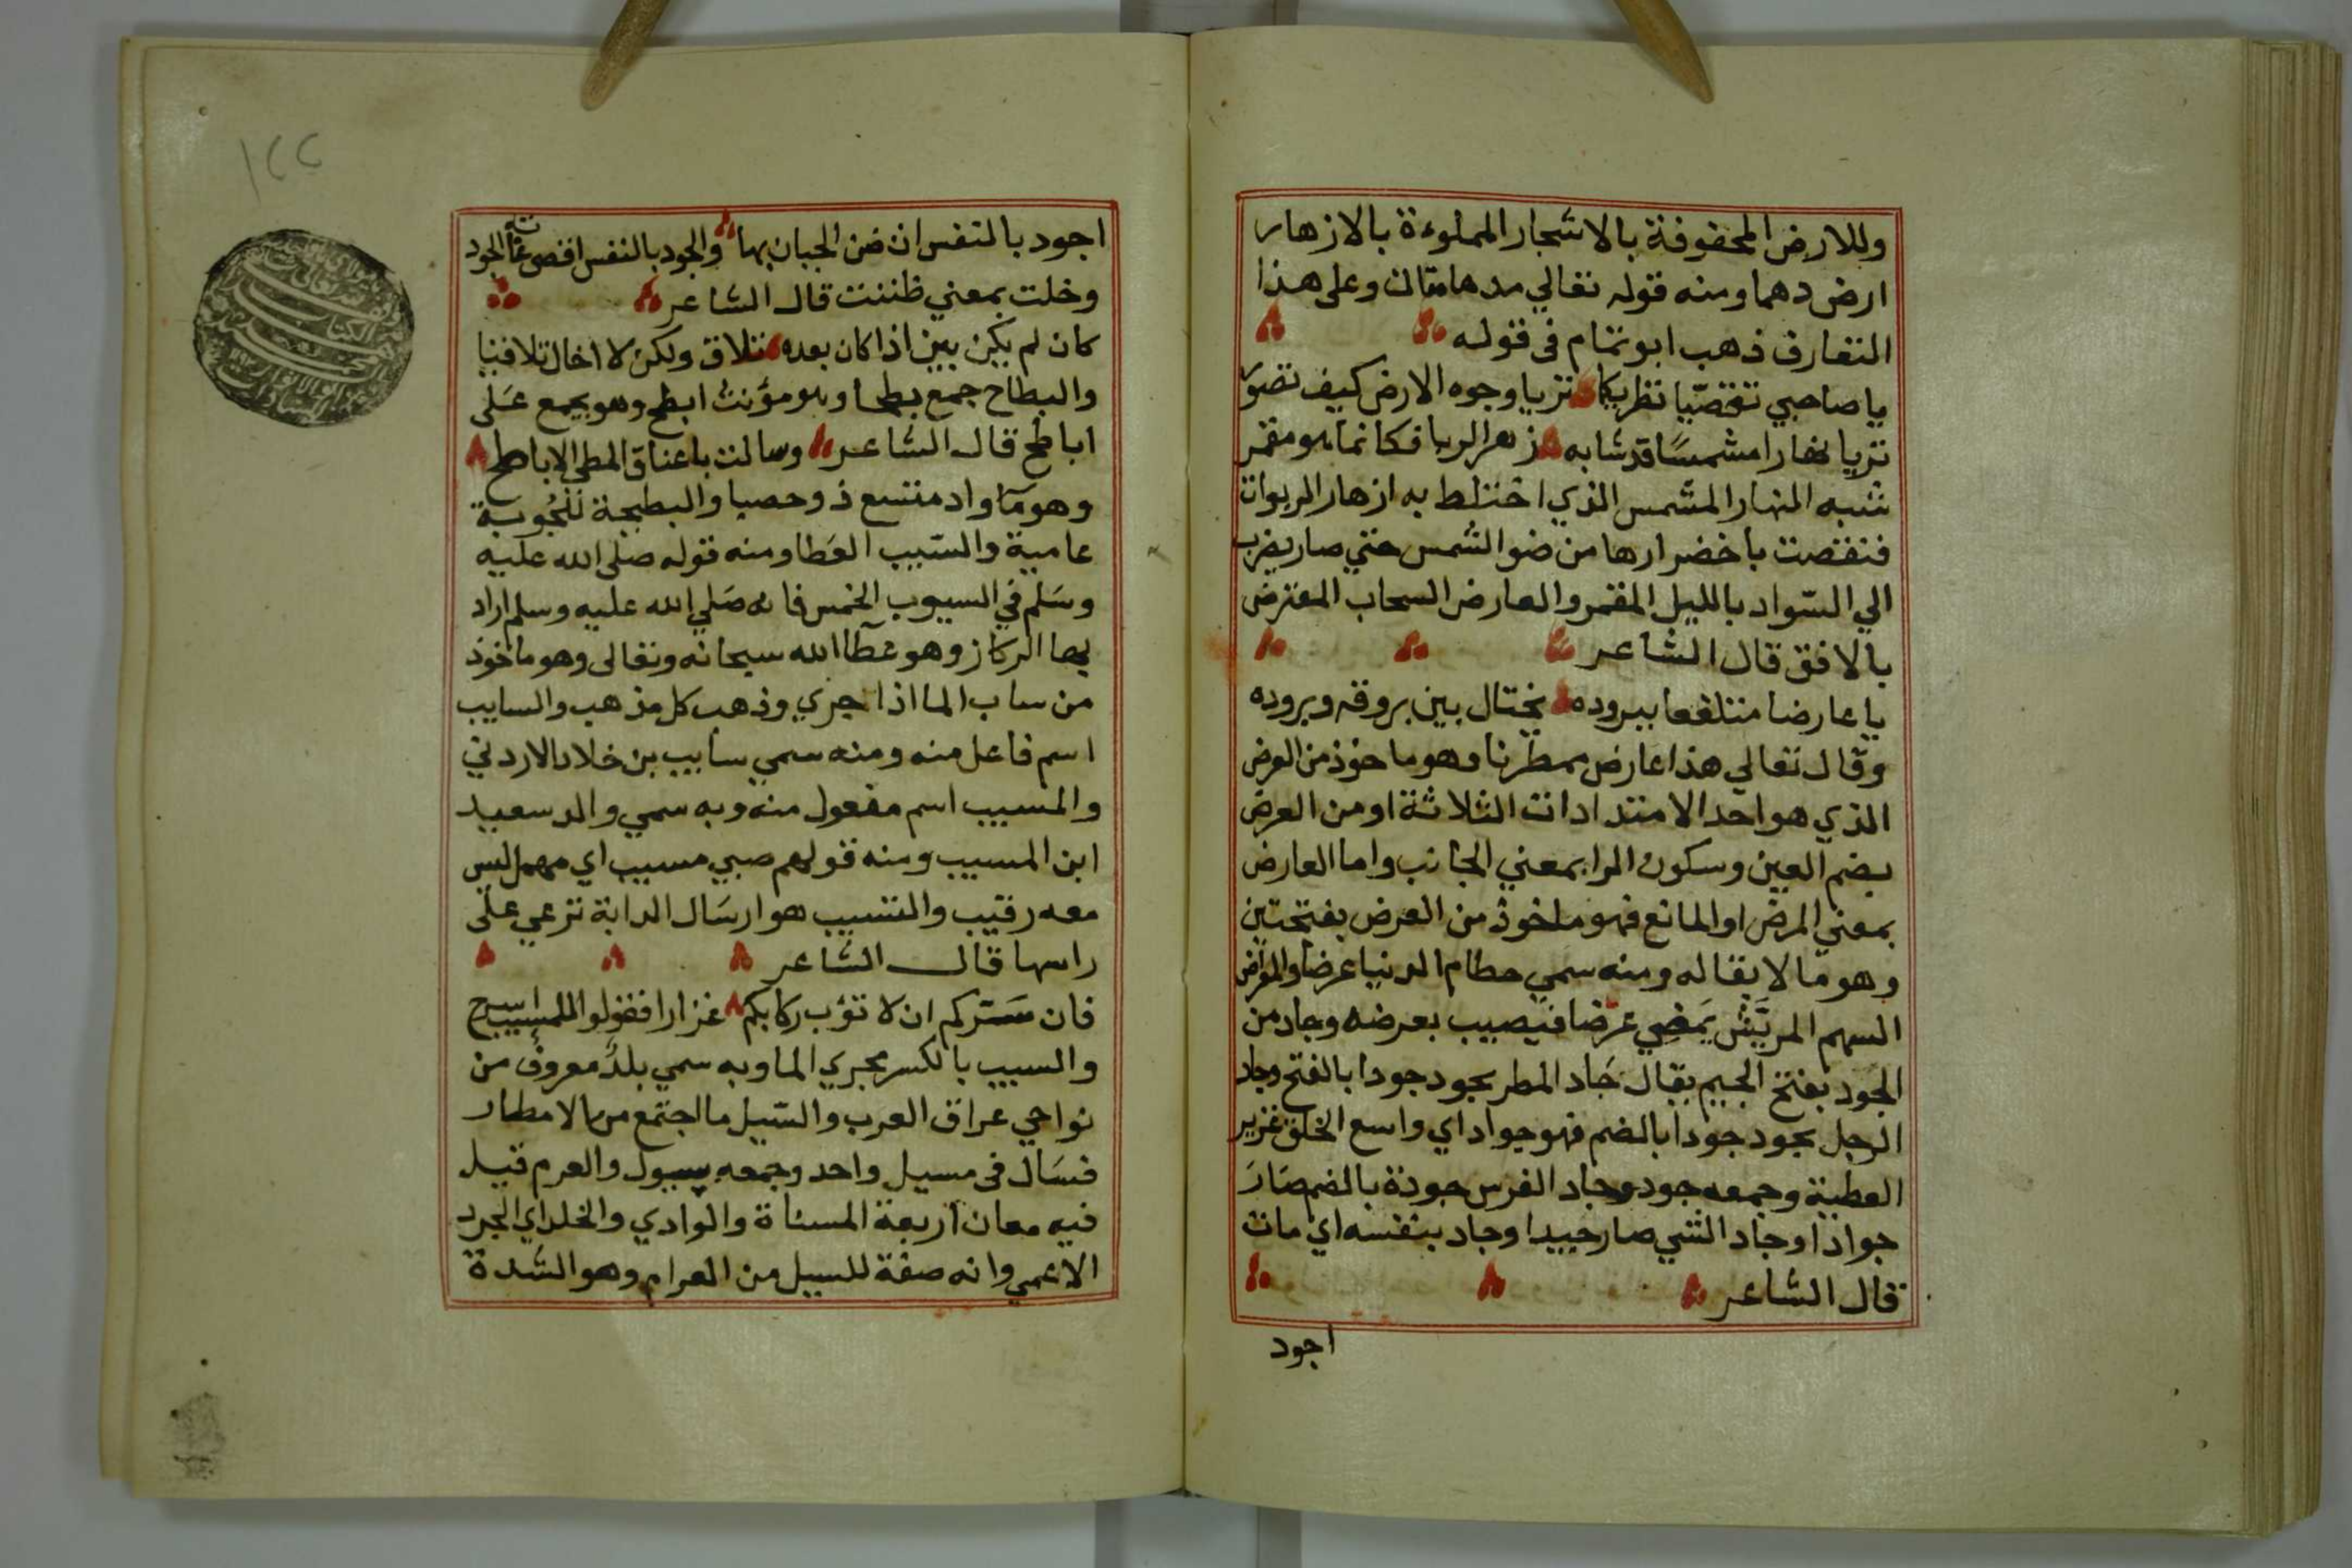 وللارض المحفوفة بالاشجار المملوءة بالازهار
ارض دهما ومنه قوله تعالي مدهامتان وعلى هذا
التعارف ذهب ابو تمام فى قوله
يا صاحبي تقصّيا نظريكما تريا وجوه الارض كيف تصوّر
تريا نهارا مشمسًا قد شابه زهر الربا فكانما هو مقمر
شبه النهار المشمس الذي اختلط به ازهار الربوات
فنقصت باخضرارها من ضو الشمس حتي صار يضرب
الي السّواد بالليل المقمر والعارض السحاب المعترض
بالافق قال الشاعر
يا عارضا متلفعا ببروده يختال بين بروقه وبروده
وقال تعالي هذا عارض ممطرنا وهو ماخوذ من العرض
الذي هو احد الامتدادات الثلاثة او من العرض
بضم العين وسكون الرا بمعني الجانب واما العارض
بمعني المرض او المانع فهو ماخوذ من العرض بفتحتين
وهو ما لا بقا له ومنه سمي حطام الدنيا عرضا والمعراض
السهم المريَّش يَمضِي عرضا فيصيب بعرضه وجاد من
الجَود بفتح الجيم يقال جَاد المطر يجود جودا بالفتح وجاد
الرجل يجود جودا بالضم فهو جواد اي واسع الخلق غزير
العطية وجمعه جود وجاد الفرس جودة بالضم صَارَ
جوادا وجاد الشي صار جيدا وجاد بنفسه اي مات
قال الشاعر
اجود
١٢٢
اجود بالنفس ان ضن الجبان بها والجود بالنفس اقصى غاية الجود
وخلت بمعني ظننت قال الشاعر
كان لم يكن بين اذا كان بعده تلاق ولكن لا اخال تلاقيا
والبطاح جمع بطحا وهو مؤنث ابطح وهو يجمع عَلى
اباطح قال الشاعر وسالت باعناق المطي الاباطح
وهو ما واد متسع ذو حصبا والبطيحة للجُوبة
عامية والسّيب العَطا ومنه قوله صلى الله عليه
وسَلم في السيوب الخمس فانه صَلي الله عليه وسلم اراد
بها الركاز وهو عطا الله سبحانه وتعالى وهو ماخوذ
من ساب الما اذا جري وذهب كل مذهب والسايب
اسم فاعل منه ومنه سمي سايب بن خلاد الاردني
والمسيب اسم مفعول منه وبه سمي والد سعيد
ابن المسيب ومنه قولهم صبي مسيب اي مهمل ليس
معه رقيب والتسييب هو ارسَال الدابة ترعي علَى
راسها قال الشاعر
فان سَتركم ان لا تؤب ركابكم غزارا فقولوا للمسيب
والسيب بالكسر مجري الما وبه سمي بلدٌ معروفٌ من
نواحي عراق العرب والسّيل ما اجتمع من الامطار
فسَال فى مسيل واحد وجمعه سيول والعرم قيل
فيه معان اربعة المسناة والوادي والخلد اي الجرد
الاعمي وانه صفة للسيل من العرام وهو الشدة